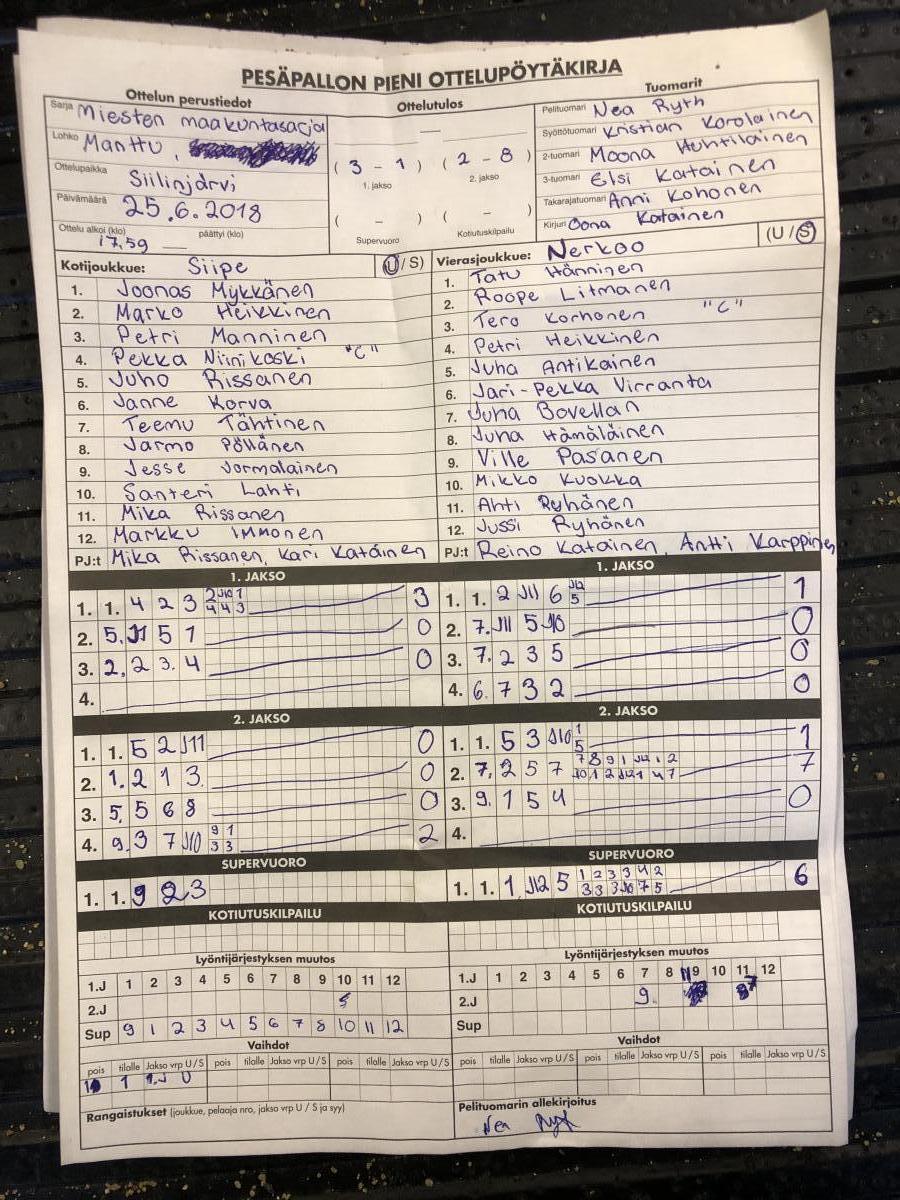 PESÄPALLON PIENI OTTELUPÖYTÄKIRJA
Ottelun perustiedot
Sarja Miesten maakuntasarja
Lohko Manttu,
Ottelupaikka Siilinjärvi
Päivämäärä 25.6.2018
Ottelu alkoi (klo) 17.59 päättyi (klo)
Ottelutulos
( 3 - 1 ) ( 2 - 8 )
1. jakso 2. jakso
( - ) ( - )
Supervuoro Kotiutuskilpailu
Tuomarit
Pelituomari Nea Ryth
Syöttötuomari Kristian Korolainen
2-tuomari Moona Huhtilainen
3-tuomari Elsi Katainen
Takarajatuomari Anni Kohonen
Kirjuri Oona Katainen
Kotijoukkue: Siipe (U/S)
1. Joonas Mykkänen
2. Marko Heikkinen
3. Petri Manninen
4. Pekka Niinikoski "C"
5. Juho Rissanen
6. Janne Korva
7. Teemu Tähtinen
8. Jarmo Pöllänen
9. Jesse Jormalainen
10. Santeri Lahti
11. Mika Rissanen
12. Markku Immonen
PJ:t Mika Rissanen, Kari Katainen
Vierasjoukkue: Nerkoo (U/S)
1. Tatu Hänninen
2. Roope Litmanen
3. Tero Korhonen "C"
4. Petri Heikkinen
5. Juha Antikainen
6. Jari-Pekka Virranta
7. Juha Bovellan
8. Juha Hämäläinen
9. Ville Pasanen
10. Mikko Kuokka
11. Ahti Ryhänen
12. Jussi Ryhänen
PJ:t Reino Katainen, Antti Karppinen
1. JAKSO
1. 1. 4 2 3 2 J10 1 3
4 4 3
2. 5. J11 5 1 0
3. 2. 2 3. 4 0
4.
1. JAKSO
1. 1. 2 J11 6 J12 1
5
2. 7. J11 5 J10 0
3. 7. 2 3 5 0
4. 6. 7 3 2 0
2. JAKSO
1. 1. 5 2 J11 0
2. 1. 2 1 3. 0
3. 5, 5 6 8 0
4. 9. 3 7 J10 9 1 2
3 3
2. JAKSO
1. 1. 5 3 J10 1 1
5
2. 7, 2 5 7 7 8 9 1 J12 1 2 7
J10 1 2 J12 1 4 7
3. 9. 1 5 4 0
4.
SUPERVUORO
1. 1. 9 2 3
SUPERVUORO
1. 1. 1 J12 5 1 2 3 3 4 2 6
3 3 3 J10 7 5
KOTIUTUSKILPAILU
KOTIUTUSKILPAILU
Lyöntijärjestyksen muutos
1.J 1 2 3 4 5 6 7 8 9 10 11 12
2.J 5
Sup 9 1 2 3 4 5 6 7 8 10 11 12
Lyöntijärjestyksen muutos
1.J 1 2 3 4 5 6 7 8 9 10 11 12
2.J 9. 7
Sup
Vaihdot
pois tilalle Jakso vrp U/S pois tilalle Jakso vrp U/S pois tilalle Jakso vrp U/S
1 1.J U
Vaihdot
pois tilalle Jakso vrp U/S pois tilalle Jakso vrp U/S pois tilalle Jakso vrp U/S
Rangaistukset (joukkue, pelaaja nro, jakso vrp U / S ja syy)
Pelituomarin allekirjoitus
Nea Ryt